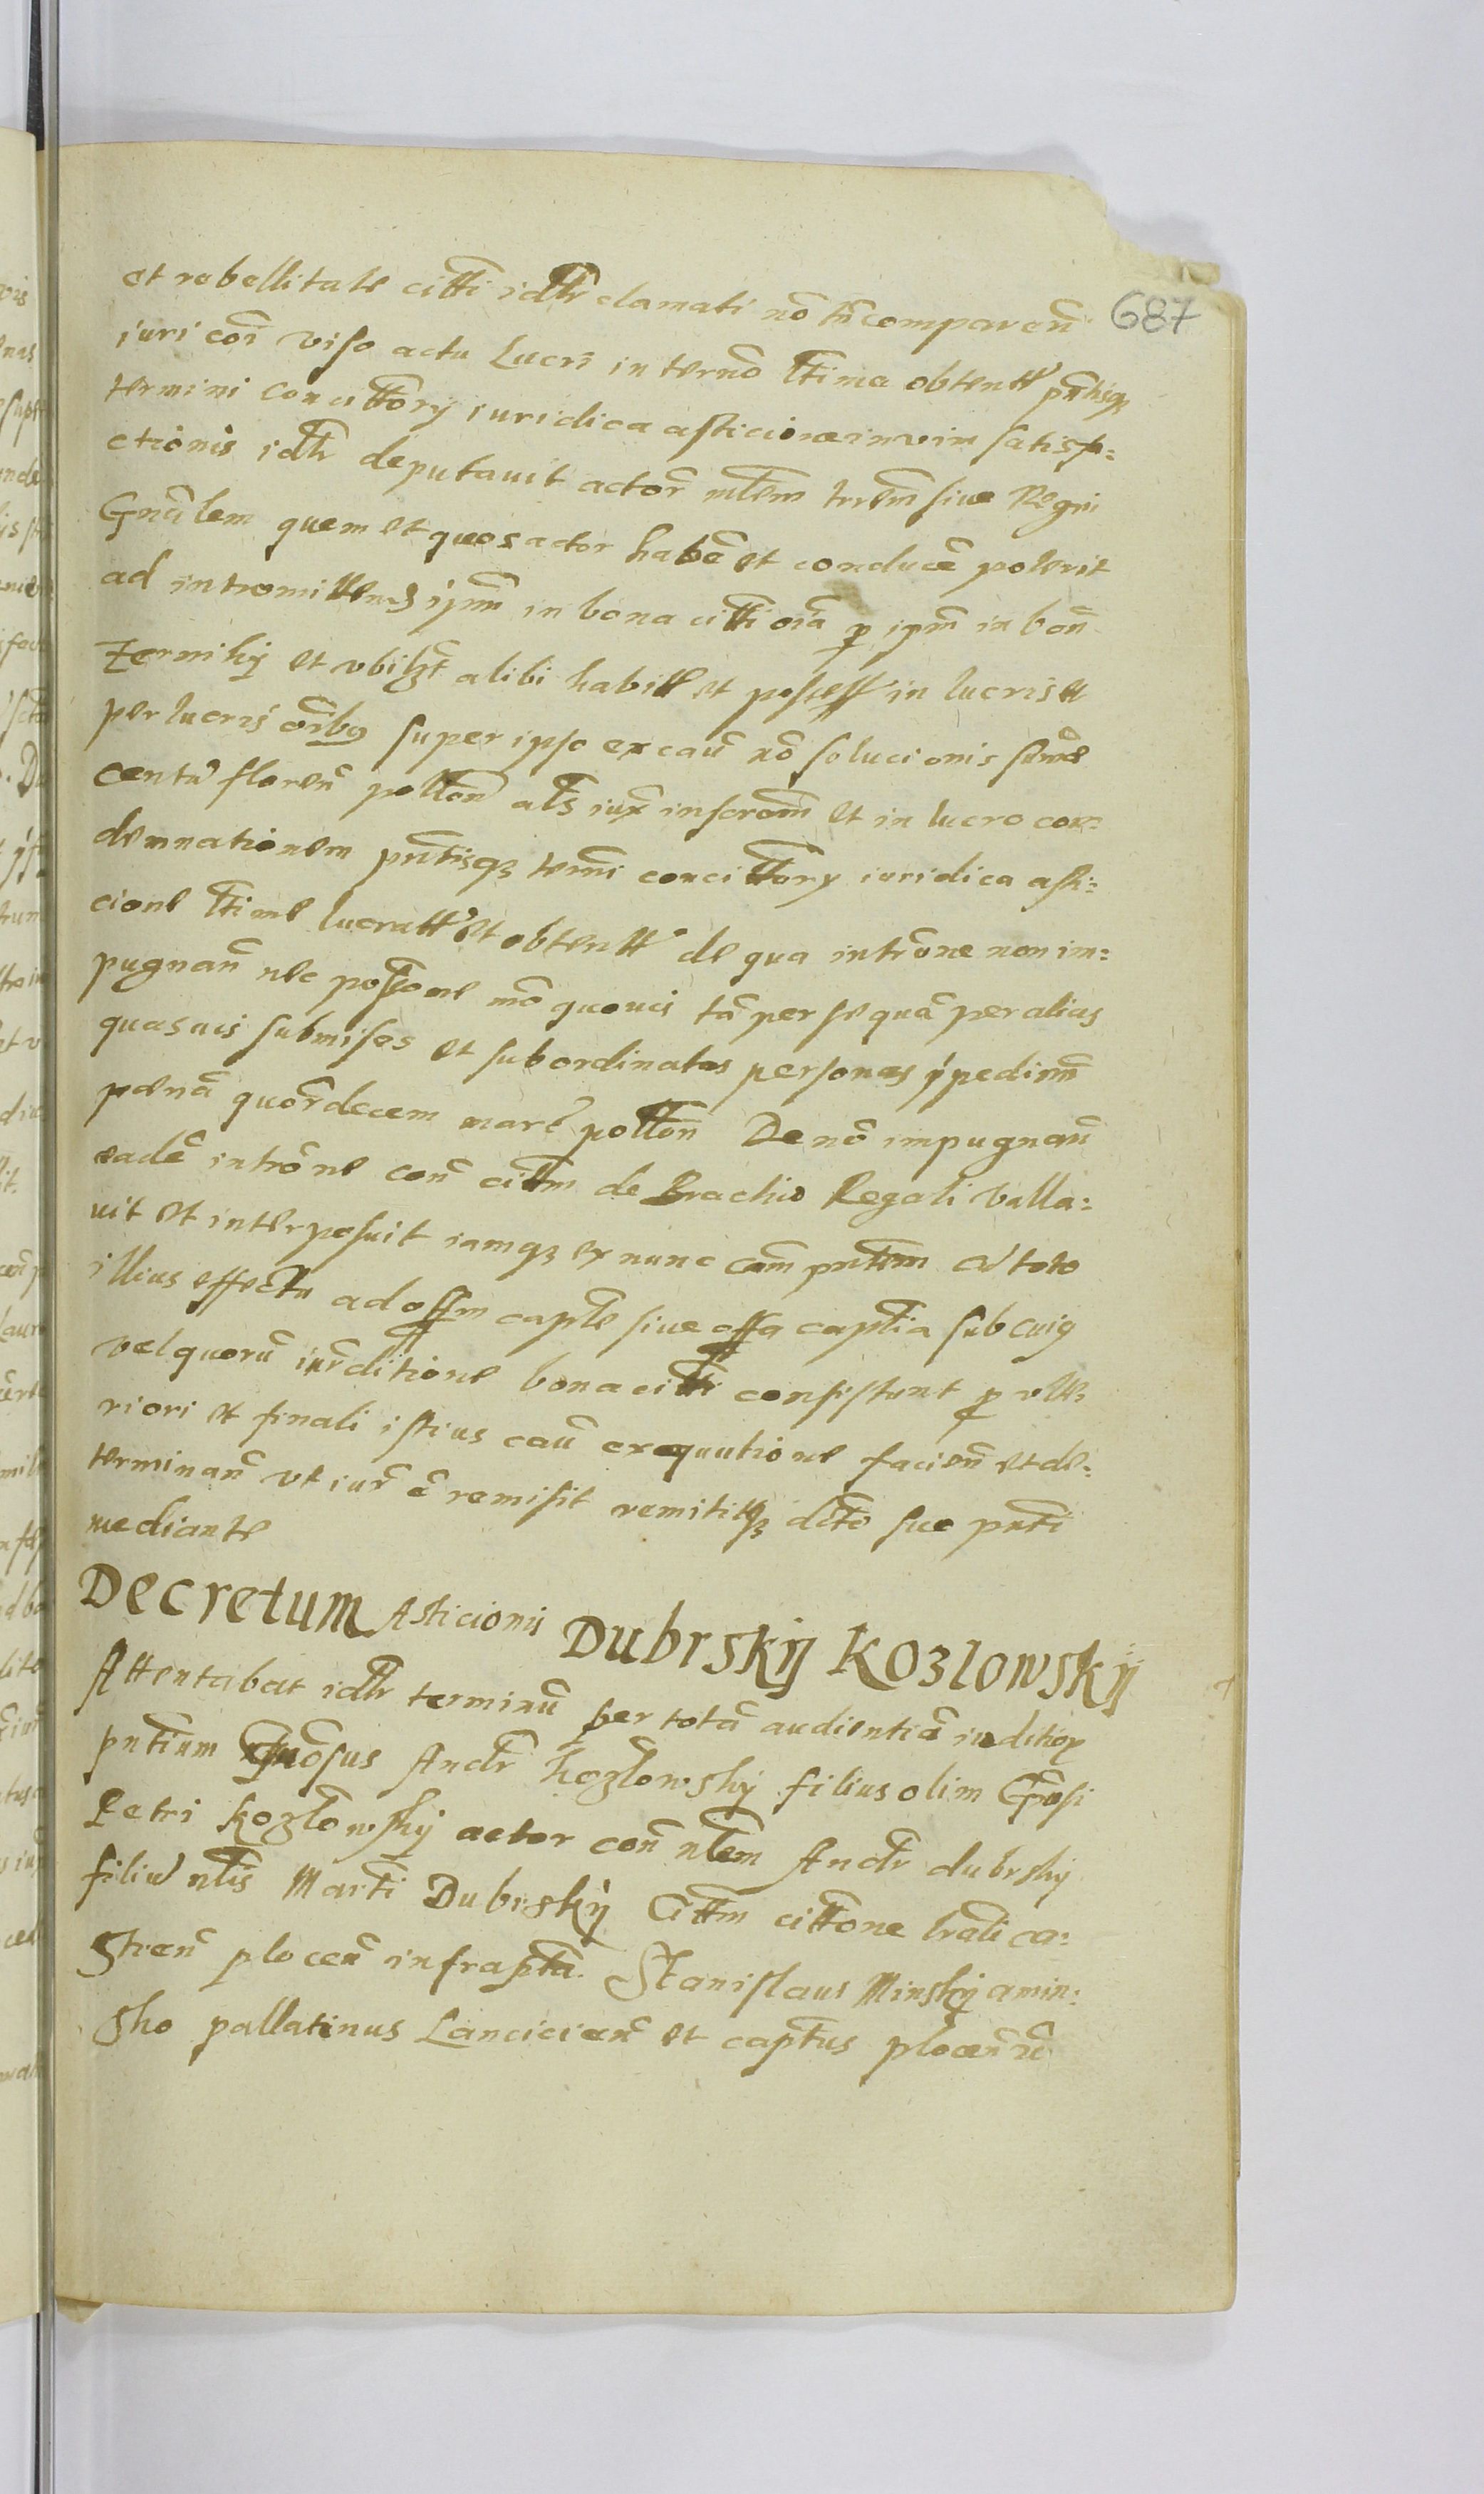 687
et rebellitate citti idtr clamati nō tn̄ comparen̄
iuri coī viso actu Lucri in ternō ttima obtentt pn̄tisqȝ
termini concittōrÿ iuridica asticione in vim satisfa=
ctionis idtr deputauit actor̄ mtem trrem̄ siue Regni
Gnālem quem et quos actor habē et conducē poterit
ad intromittend ipm̄ in bona citti oīa p ipm̄ in bon̄
et vbilȝt alibi habitt et possess in lucris et
per lucris oībȝ super ipso ex cau͂ nō solucionis sum̄e
centu͂ floren̄ polton̄ als iux inscrom̄ et in lucro con=
demnationem pn̄tisqȝ term̄i concittōrÿ iuridica asti=
cione ttime lucratt et obtentt de qua intrōne non im=
pugnan̄ nec possone mō quouis tā per se quā per alias
quasuis submissas et subordinatas personas ÿpediem̄
pœnā quōr̄decem marc polton̄ De nō impugnan̄
eadē intrōne con̄ cittm de Brachio Regali valla=
uit et interposuit iamqȝ ex nunc cām pn̄tem cu͂ toto
illius effectu ad offm capte siue offa captia sub cuiȝ
vel quoru͂ iur̄ditione bona citti consistunt p vlte=
riori et finali istius cau͂ exequutione facien̄ et de=
terminan̄ vt iur̄ ē remisit remititqȝ dcto suo pn̄ti
mediante
Decretum Asticionis Dubrskÿ Kozlowskÿ
Attentabat idtr terminu͂ per totā audientiā iuditioȝ
pn̄tium Gnōsus Andr̄ Kozlowskÿ filius olim Gnōsi
Petri Kozlowskÿ actor con̄ ntem Andr̄ dubrskÿ
filiu͂ ntis Marti Dubrskÿ Cittm cittone trali ca=
stren̄ plocen̄ infrapta. Stanislaus Minskÿ a min=
sko pallatinus Lancicien̄ et captus plocen̄ rc